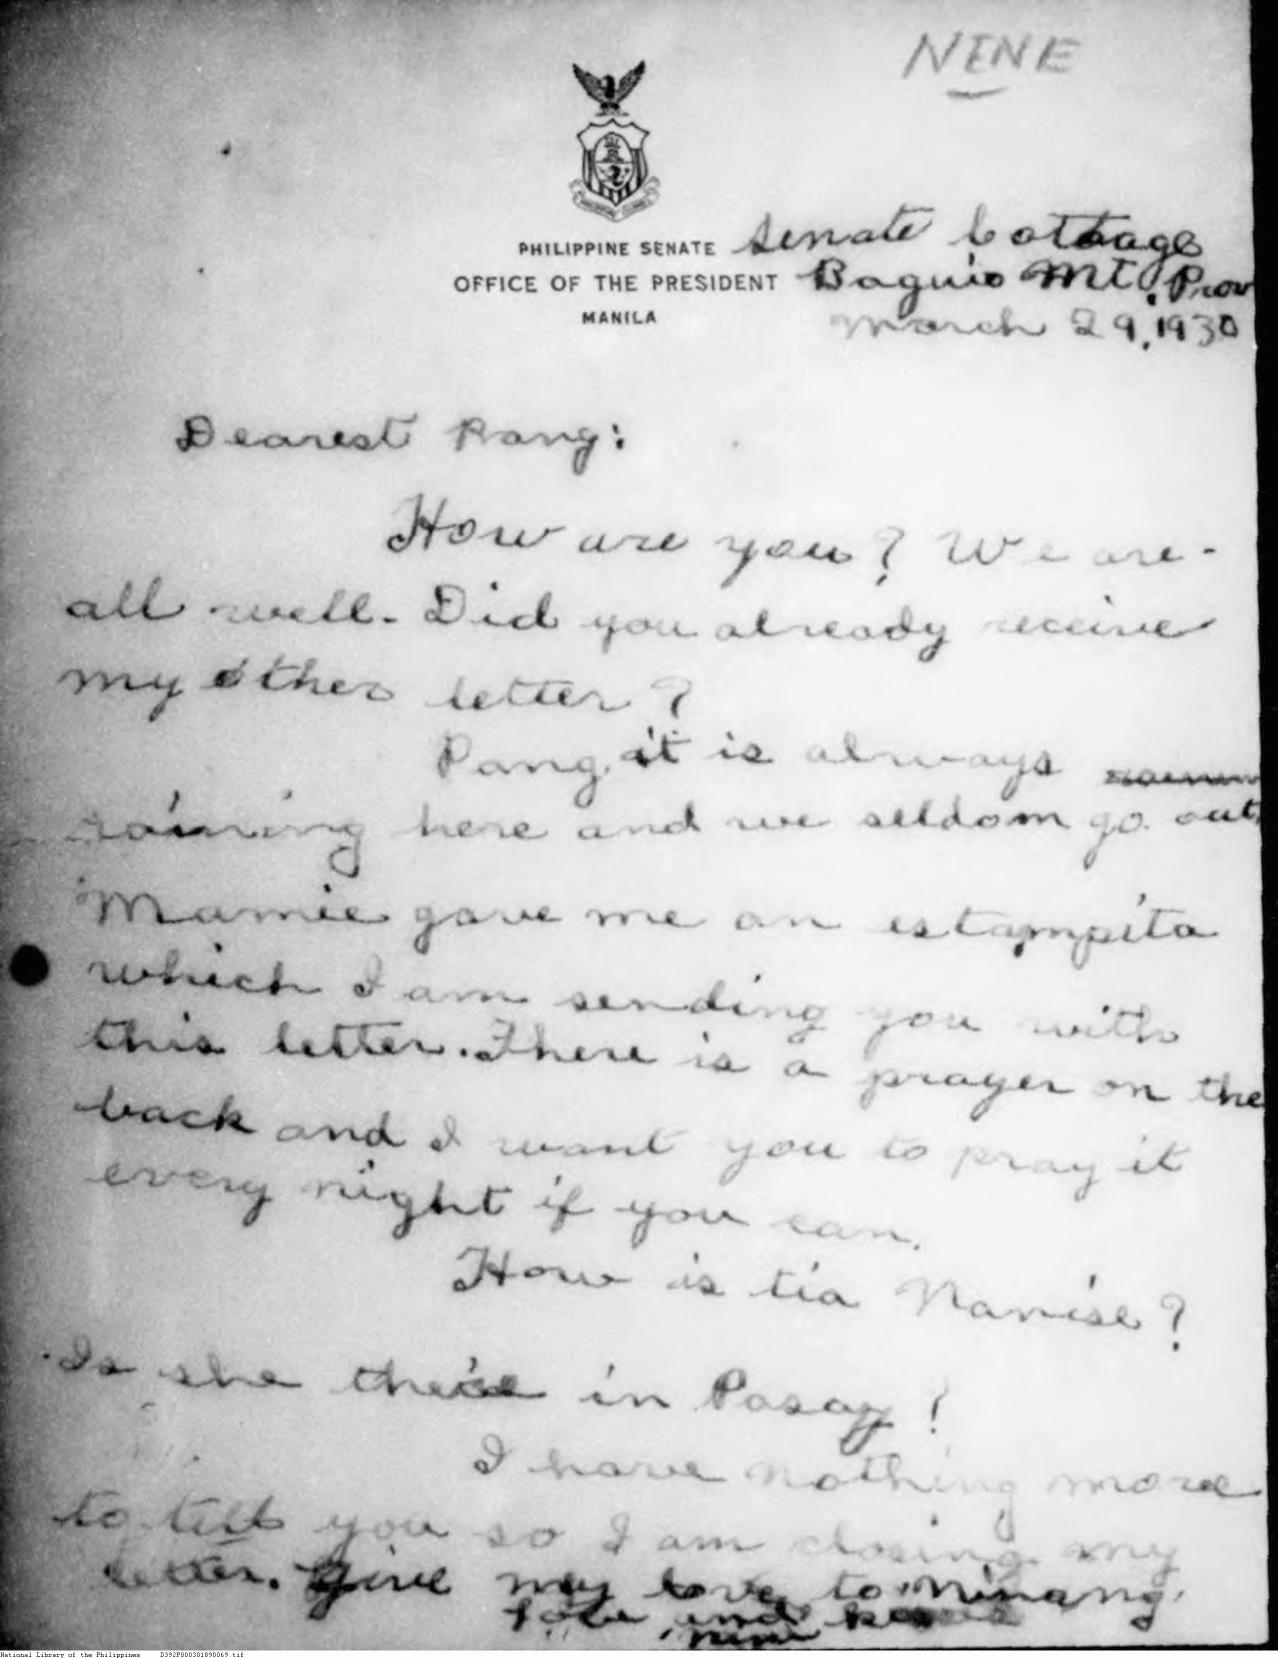 NENE
PHILIPPINE SENATE
OFFICE OF THE PRESIDENT
MANILA
Senate Cottage
Baguio Mt. Prov
March 29, 1930
Dearest Pang:
How are you? We are
all well. Did you already receive
my other letter?
Pang, it is always
raining here and we seldom go out.
Mamie gave me an estampita
which I am sending you with
this letter. There is a prayer on the
back and I want you to pray it
every night if you can.
How is tia Nanise?
Is she there in Pasay?
I have nothing more
to tell you so I am closing my
letter. Give my love to Ninang.
Love and
Nini
National Library of the Philippines D392P000301890069.tif